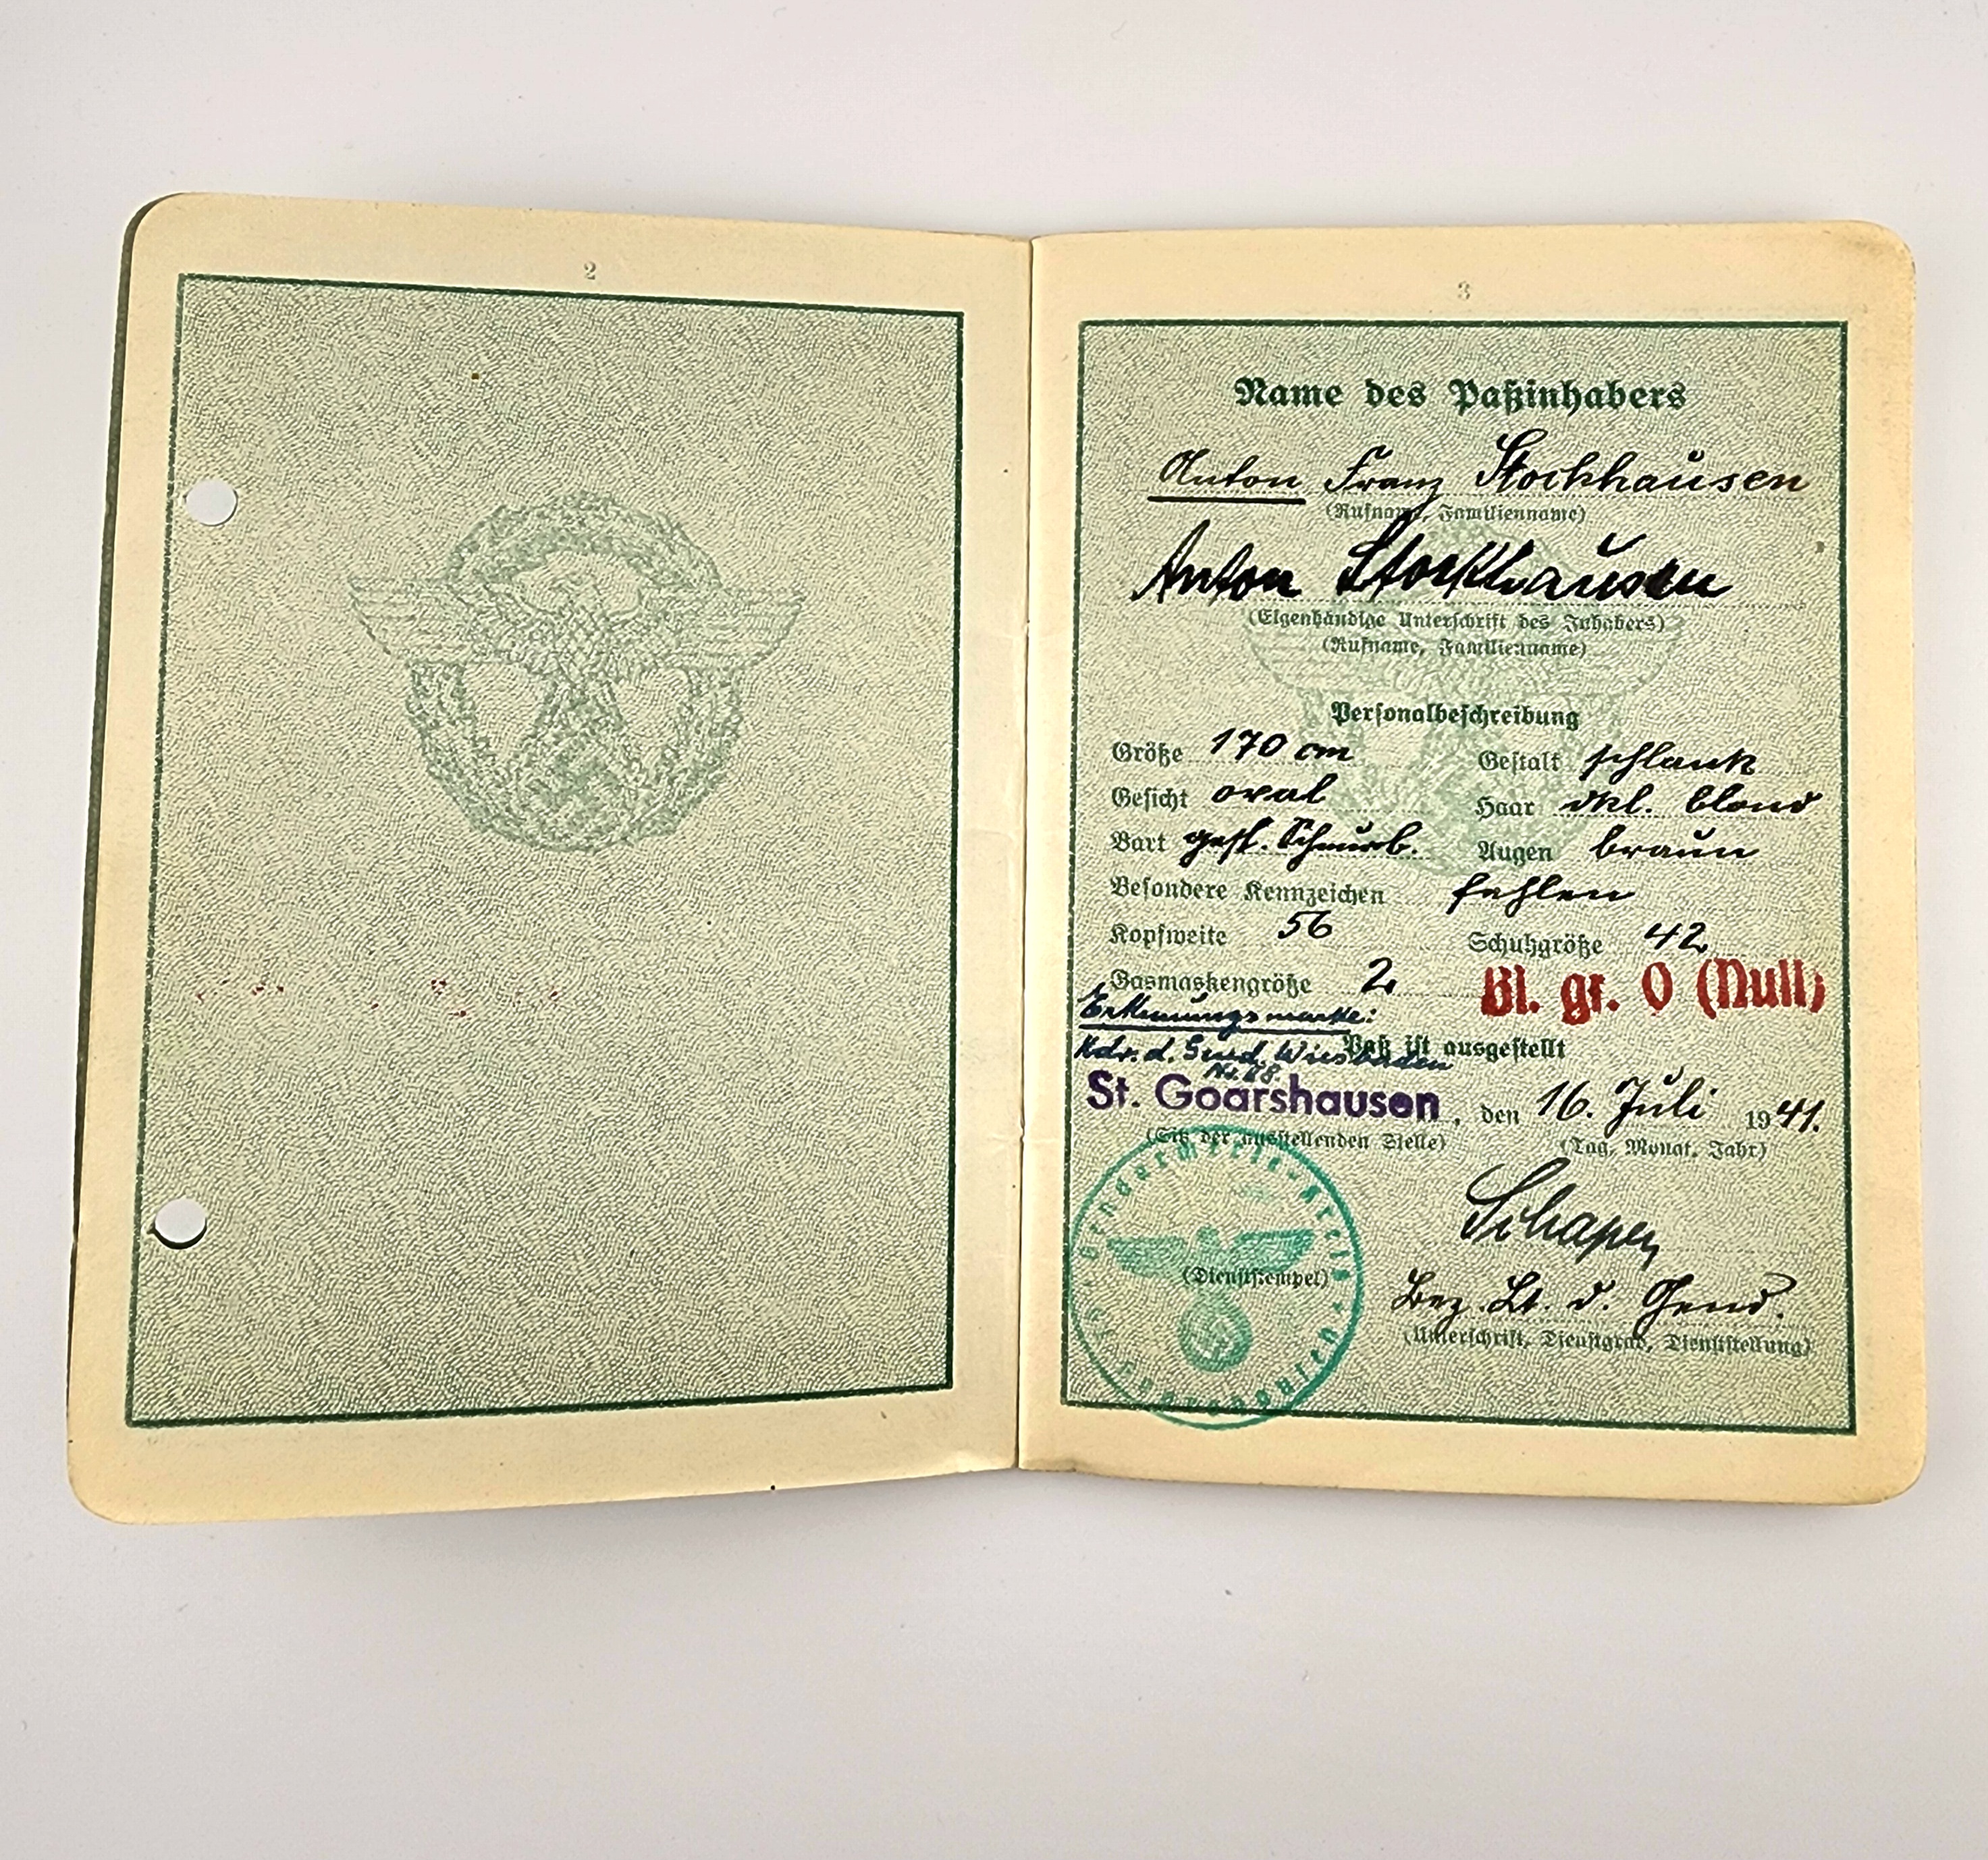 2
3
Name des Paßinhabers
Anton Franz Stockhausen
(Rufname, Familienname)
Anton Stockhausen
(Eigenhändige Unterschrift des Inhabers)
(Rufname, Familienname)
Personalbeschreibung
Größe 170 cm Gestalt schlank
Gesicht oval Haar dkl. blond
Bart gest. Schnurb. Augen braun
Besondere Kennzeichen fehlen
Kopfweite 56 Schuhgröße 42
Gasmaskengröße 2 Bl. gr. O (Null)
Erkennungsmarke:
Kdr. d. Gend. Wiesbaden
Paß ist ausgestellt
St. Goarshausen, den 16. Juli 1941.
(Sitz der ausstellenden Stelle) (Tag, Monat, Jahr)
Gendarmerie-Kreis
St. Goarshausen
(Dienststempel)
Bez. Lt. d. Gend.
(Unterschrift, Dienstgrad, Dienststellung)